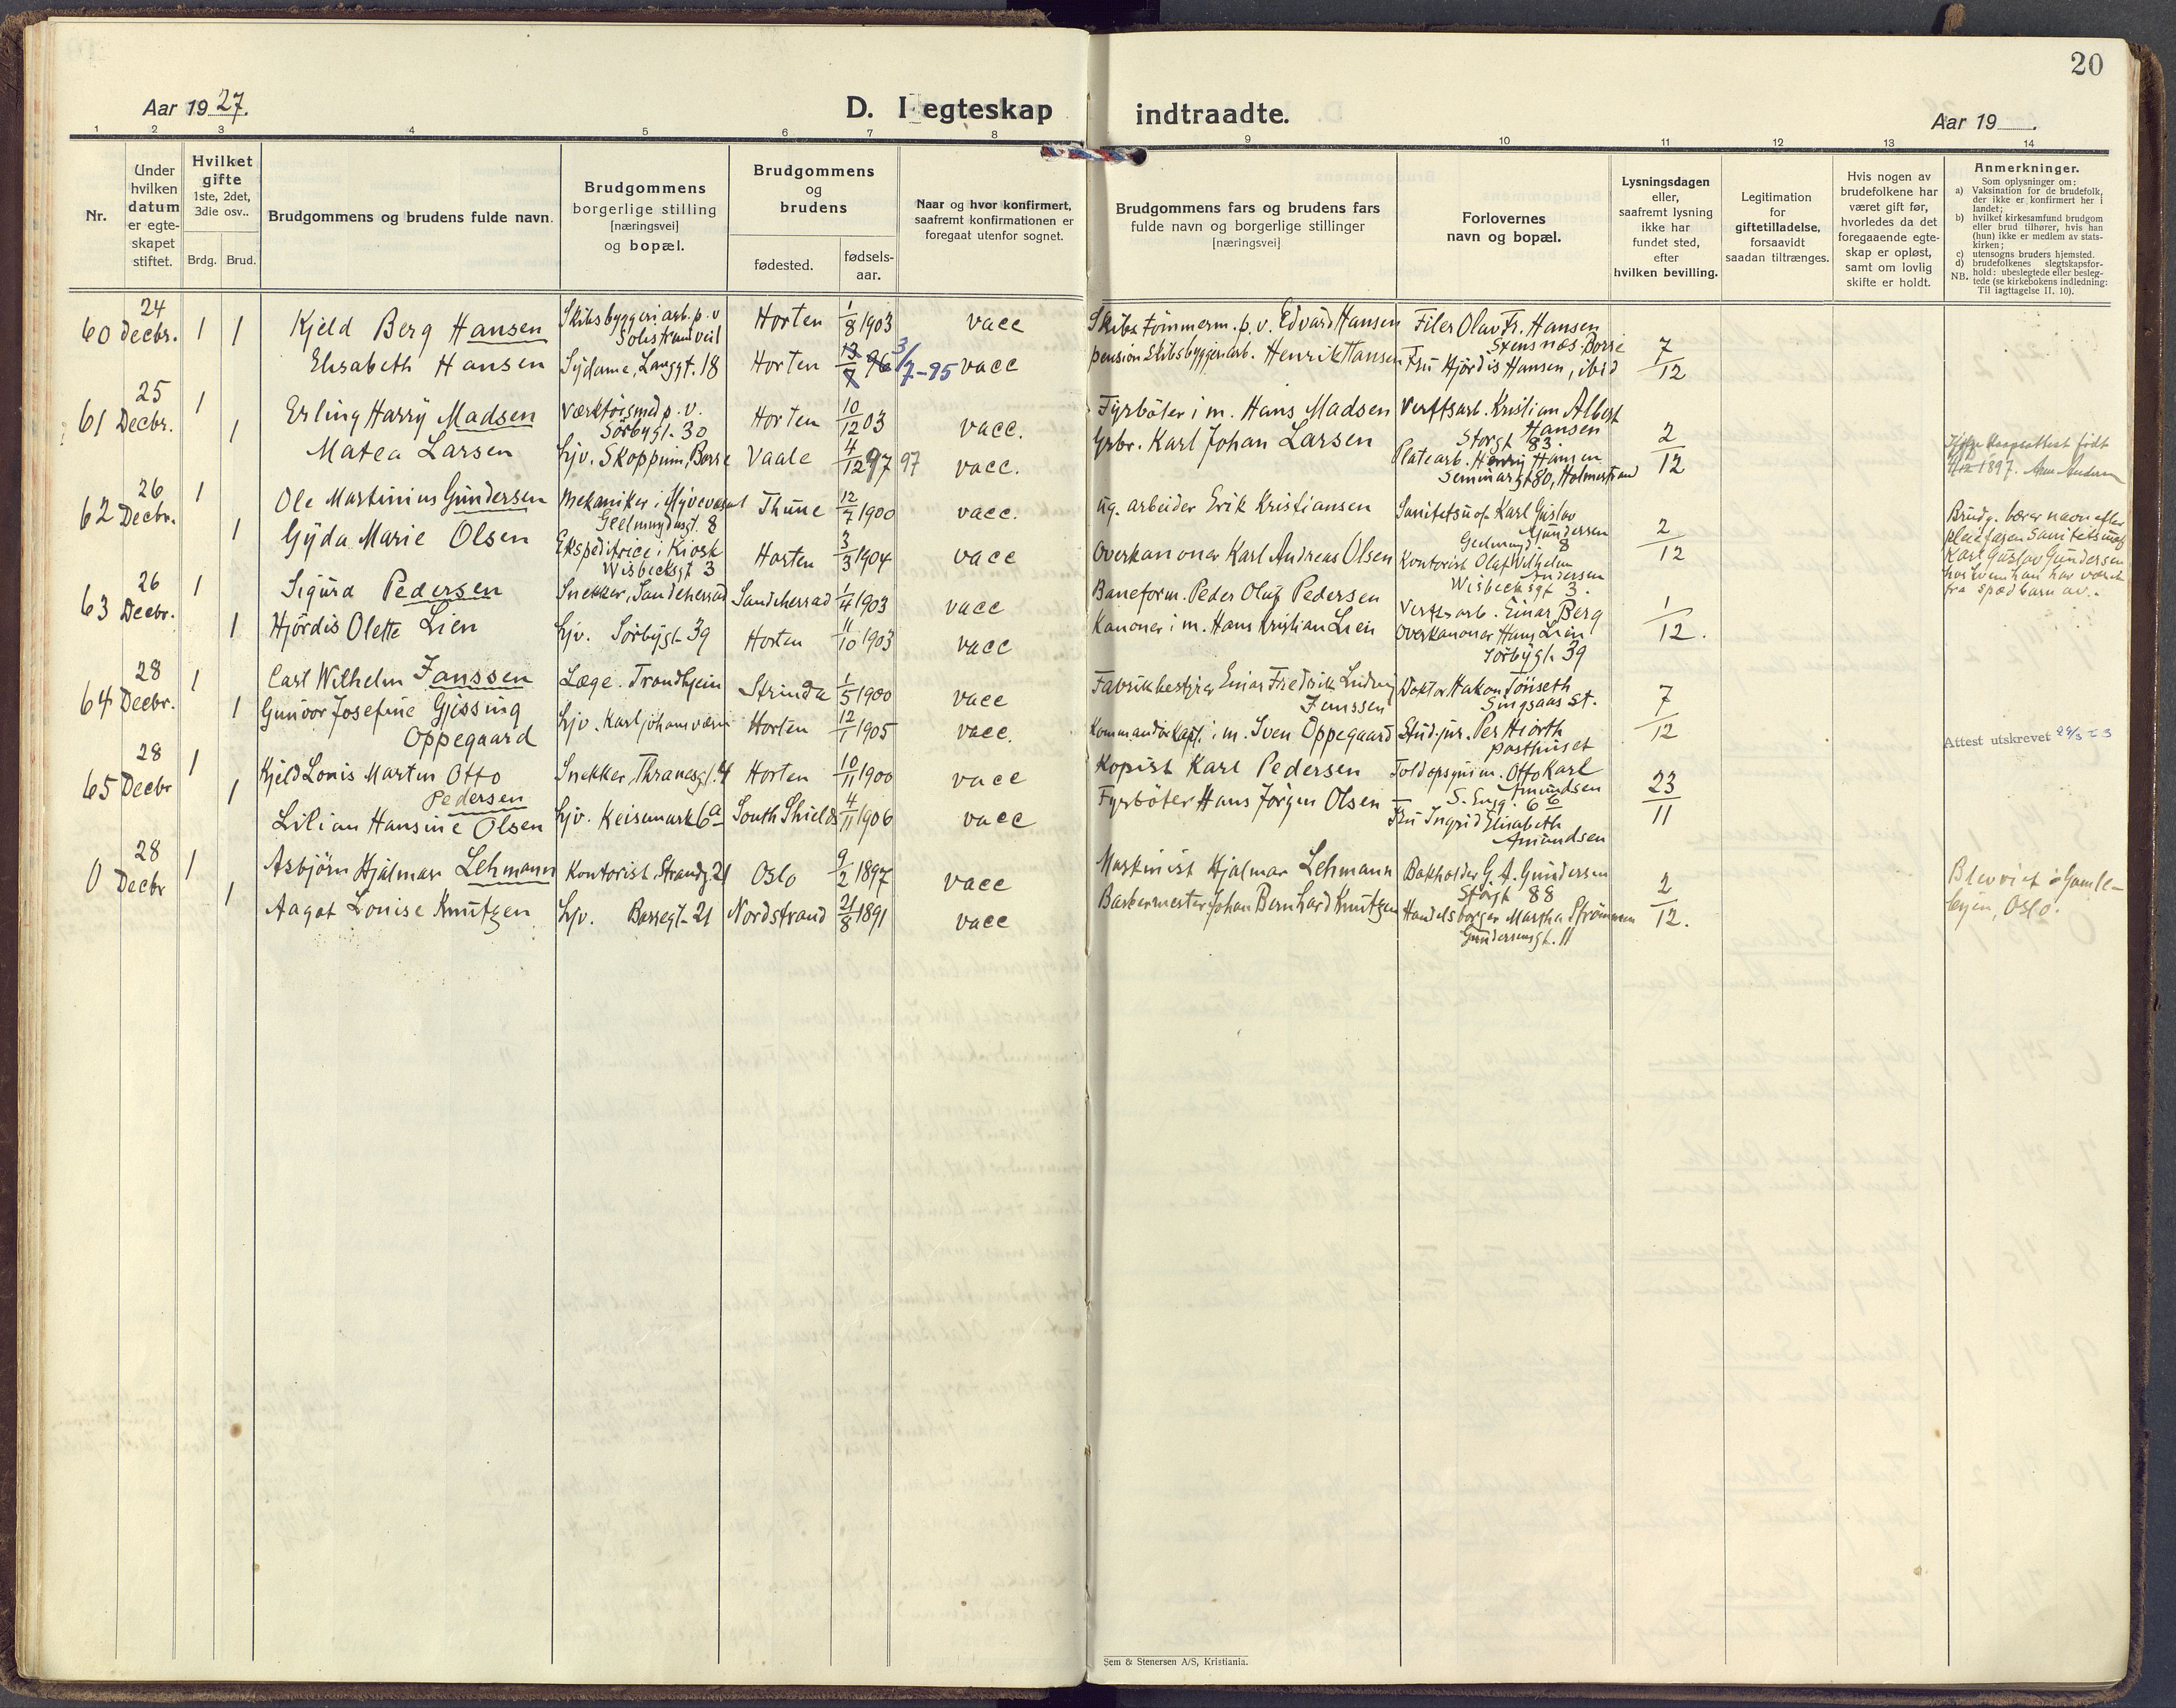 20
Aar 1927.
D. I egteskap indtraadte.
Aar 19
1 2 3 4 5 6 7 8 9 10 11 12 13 14
Nr.
Under
hvilken
datum
er egte-
skapet
stiftet.
Hvilket
gifte
1ste, 2det,
3die osv..
Brdg. Brud.
Brudgommens og brudens fulde navn.
Brudgommens
borgerlige stilling
[næringsvei]
og bopæl.
Brudgommens
og
brudens
fødested.
fødsels-
aar.
Naar og hvor konfirmert,
saafremt konfirmationen er
foregaat utenfor sognet.
Brudgommens fars og brudens fars
fulde navn og borgerlige stillinger
[næringsvei]
Forlovernes
navn og bopæl.
Lysningsdagen
eller,
saafremt lysning
ikke har
fundet sted,
efter
hvilken bevilling.
Legitimation
for
giftetilladelse,
forsaavidt
saadan tiltrænges.
Hvis nogen av
brudefolkene har
været gift før,
hvorledes da det
foregaaende egte-
skap er opløst,
samt om lovlig
skifte er holdt.
Anmerkninger.
Som oplysninger om:
a) Vaksination for de brudefolk,
der ikke er konfirmert her i
landet;
b) hvilket kirkesamfund brudgom
eller brud tilhører, hvis han
(hun) ikke er medlem av stats-
kirken;
c) utensogns bruders hjemsted.
d) brudefolkenes slegtskapsfor-
NB. hold: ubeslegtede eller besleg-
tede (se kirkebokens indledning:
Til iagttagelse II. 10).
60 24 Decbr. 1 1 Kjeld Berg Hansen Skibsbyggeriarb. p. v Horten 1/8 1903 vacc Skibstømmerm. p. v. Edvard Hansen Filer Olav Fr. Hansen
Stensnæs. Borre 7/12
Elisabeth Hansen Sydame, Langgt. 18 Horten 13/7 96 3/7-95 vacc pension Skibsbyggeriarb. Henrik Hansen Fru Hjördis Hansen, ibid
61 25 Decbr. 1 1 Erling Harry Madsen Værktøismed p. v. Horten 10/12 03 vacc. Fyrböter i m. Hans Madsen Verftsarb. Kristian Albert
Sörbygt. 30 Hansen
Storgt 83. 2/12
Matea Larsen Hjv. Skoppum, Borre Vaale 4/12 97 97 vacc. Grbr. Karl Johan Larsen Platearb. Henry Hansen
Seminargt 80, Holmestrand
født
1897.
62 26 Decbr. 1 1 Ole Martinius Gundersen Mekaniker i Flyvevæsnet Thune 12/7 1900 vacc. ug. arbeider Erik Kristiansen Sanitetsuof. Karl Gustav
Geelmuydensgt. 8 Gundersen
2/12
Gyda Marie Olsen Ekspeditrice i Kiosk Horten 3/3 1904 vacc Overkanoner Karl Andreas Olsen Kontorist Olaf Wilhelm
Wisbecksgt 3 Andersen
Wisbecksgt 3.
Brudg. bærer navn efter
pleiefaren Sanitetsuof
Karl Gustav Gundersen
hos hvem han har været
fra spædbarn av.
63 26 Decbr. 1 1 Sigurd Pedersen Snekker, Sandeherred Sandeherred 1/4 1903 vacc Baneform. Peder Oluf Pedersen Verftsarb. Einar Berg 1/12.
Hjördis Olette Lien Hjv. Sörbygt. 39 Horten 11/10 1903 vacc Kanoner i m. Hans Kristian Lien Overkanoner Hans Lien
Sörbygt. 39
64 28 Decbr. 1 1 Carl Wilhelm Janssen Læge. Trondhjem Strinda 1/5 1900 vacc Fabrikbestyrer Einar Fredrik Ludvig Doktor Hakon Tönseth
Janssen Singsaas St. 7/12
Gunvor Josefine Gjessing Hjv. Karljohansværn Horten 12/1 1905 vacc. Kommandörkapt. i m. Sven Oppegaard Stud. jur. Per Hiorth
Oppegaard Posthuset
Attest utskrevet
65 28 Decbr 1 1 Kjeld Louis Martin Otto Snekker, Thranesgt. 4 Horten 10/11 1900 vacc Kopist Karl Pedersen Toldopsynsm. Otto Karl
Pedersen Amundsen 23/11
Lilian Hansine Olsen Hjv. Keisemark 6a South Shields 4/11 1906 vacc Fyrböter Hans Jörgen Olsen Fru Ingrid Elisabeth
Amundsen
0 28 Decbr 1 1 Asbjörn Hjalmar Lehmann Kontorist, Strandg. 21 Oslo 9/2 1897 vacc Maskinist Hjalmar Lehmann Bokholder G. A. Gundersen
Storgt 88 2/12.
Aagot Louise Knutzen Hjv. Borregt. 21 Nordstrand 21/8 1891 vacc Barbermester Johan Bernhard Knutzen Handelsborger Martha Strömmen
Gundersensgt. 11
Blev viet i Gamle-
byen, Oslo.
Sem & Stenersen A/S, Kristiania.